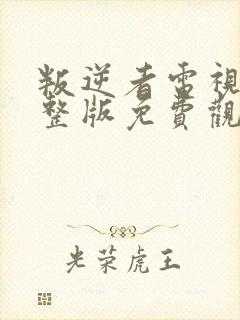 叛逆者電視
整版免費觀
光荣虎王